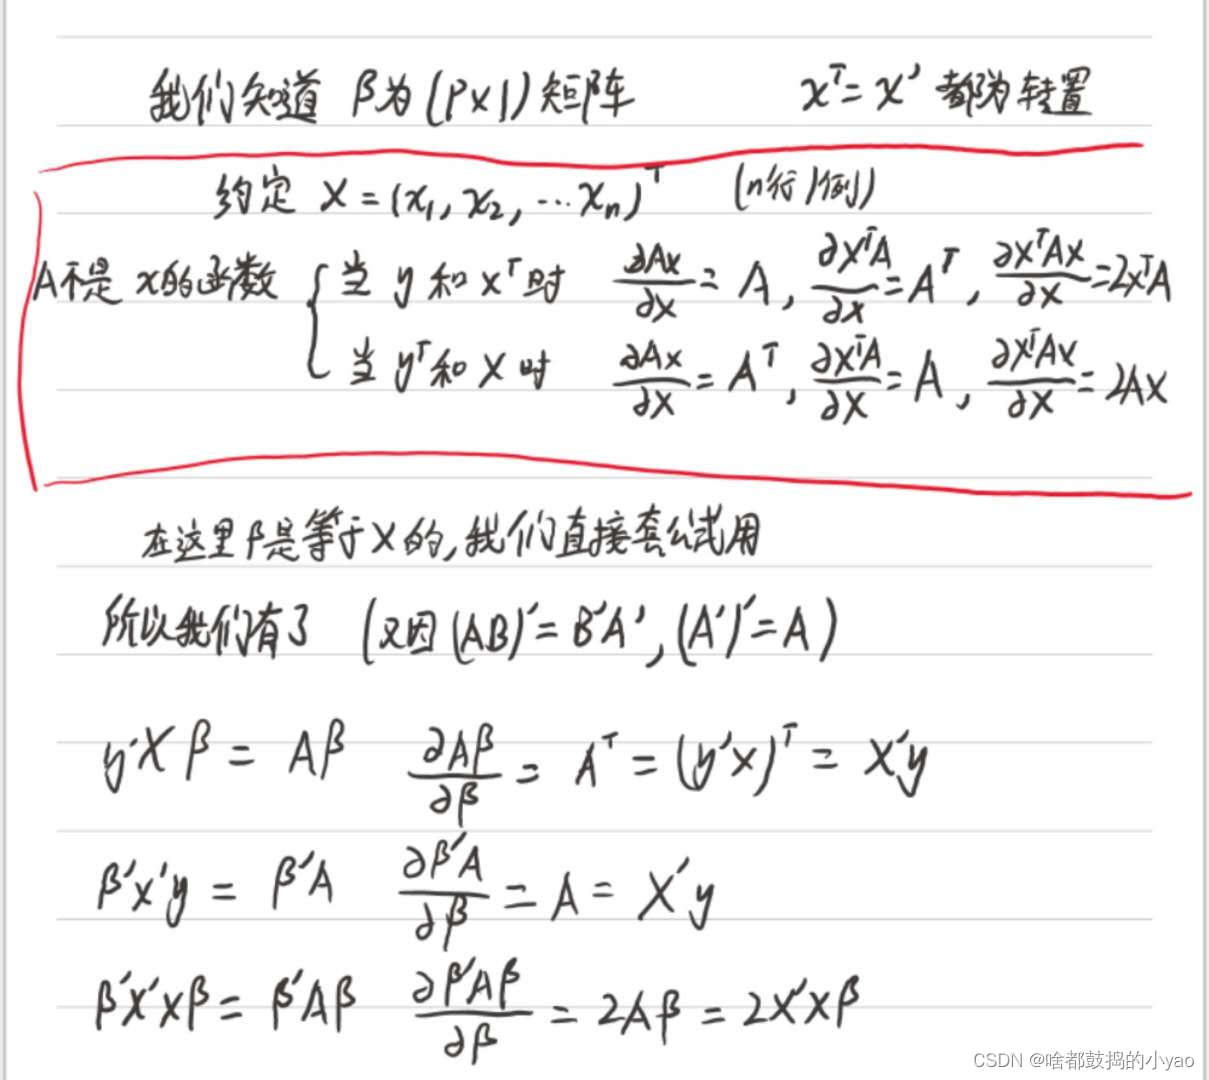 我们知道 β为(P×1)矩阵 xᵀ=x' 都为转置
约定 X=(x₁,x₂,…xₙ)ᵀ (n行1列)
A不是x的函数 { 当 y 和 xᵀ 时 ∂Ax/∂x = A, ∂xᵀA/∂x = Aᵀ, ∂xᵀAx/∂x = 2xᵀA
当 yᵀ和 x 时 ∂Ax/∂x = Aᵀ, ∂xᵀA/∂x = A, ∂xᵀAx/∂x = 2Ax
在这里β是等于X的,我们直接套公式用
所以我们有了 (又因(AB)'=B'A', (A')'=A)
y'Xβ = Aβ ∂Aβ/∂β = Aᵀ = (y'x)ᵀ = X'y
β'x'y = β'A ∂β'A/∂β = A = X'y
β'x'xβ = β'Aβ ∂β'Aβ/∂β = 2Aβ = 2X'xβ
CSDN @啥都鼓捣的小yao